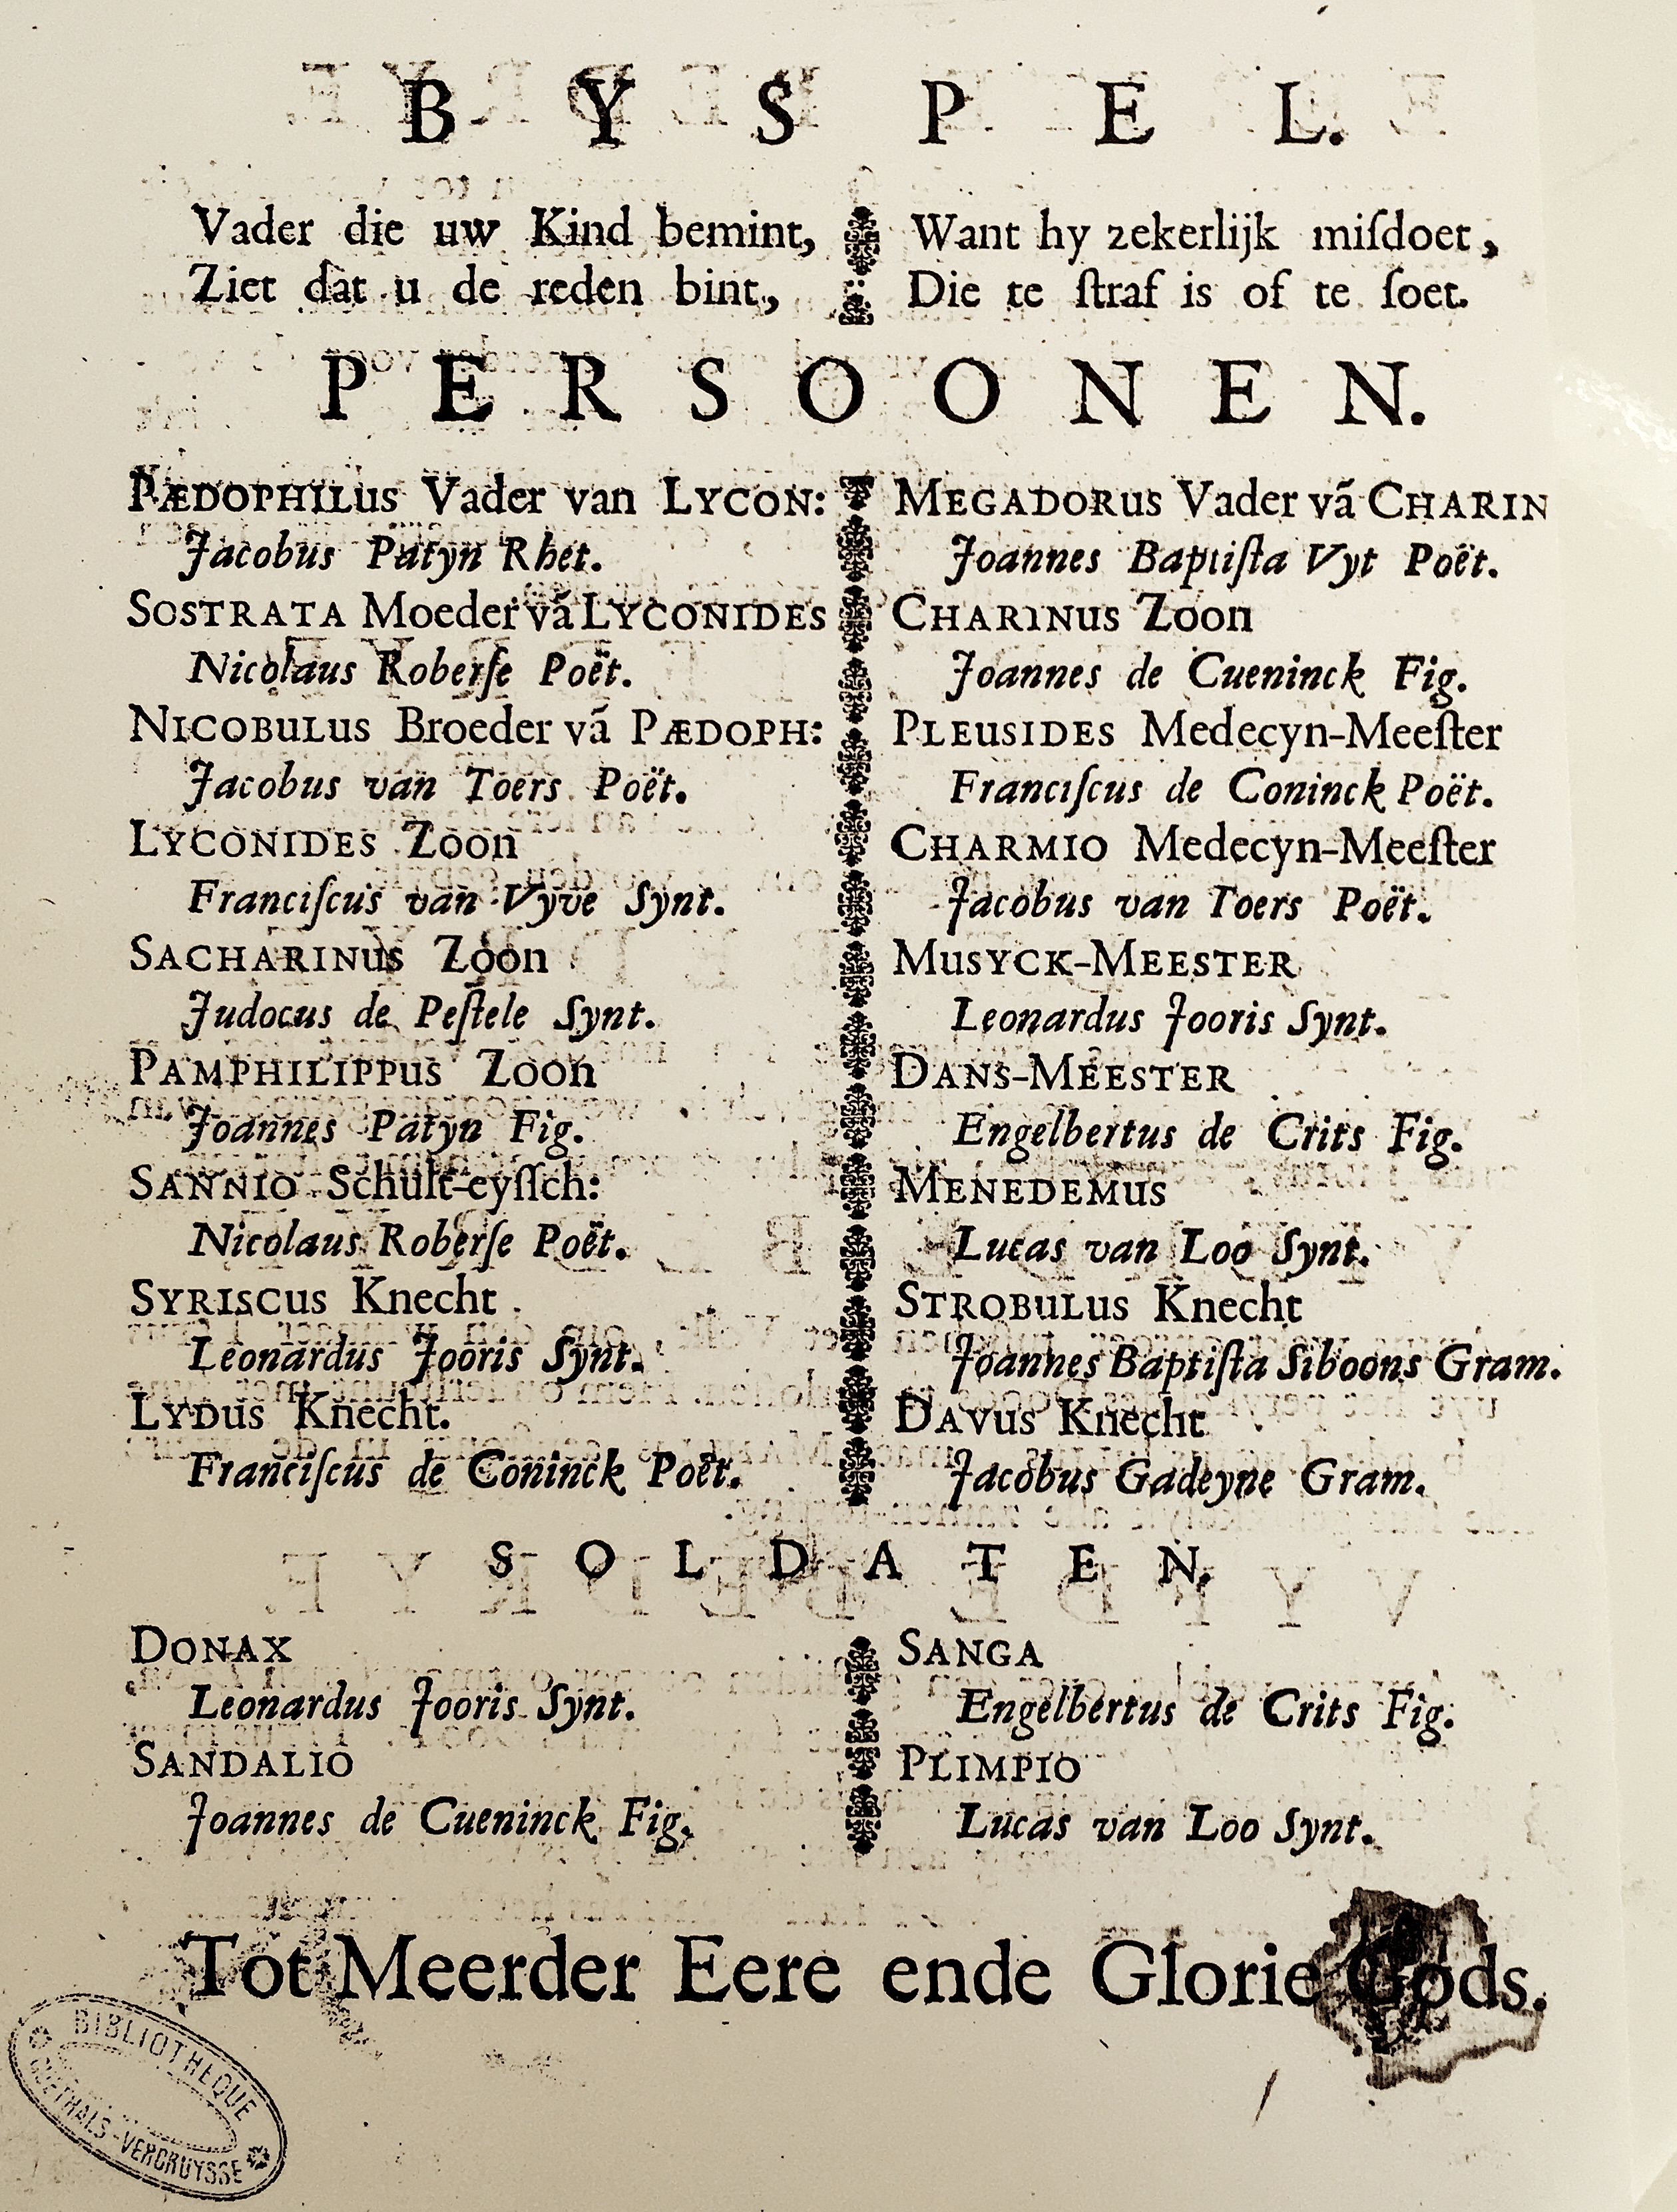 BYSPEL.
Vader die uw Kind bemint,
Ziet dat u de reden bint,
Want hy zekerlijk miſdoet,
Die te ſtraf is of te ſoet.
PERSOONEN.
PÆDOPHILUS Vader van LYCON:
Jacobus Patyn Rhet.
SOSTRATA Moeder vã LYCONIDES
Nicolaus Roberſe Poët.
NICOBULUS Broeder vã PÆDOPH:
Jacobus van Toers Poët.
LYCONIDES Zoon
Franciſcus van Vyve Synt.
SACHARINUS Zoon
Judocus de Peſtele Synt.
PAMPHILIPPUS Zoon
Joannes Patyn Fig.
SANNIO Schult-eyſſch:
Nicolaus Roberſe Poët.
SYRISCUS Knecht
Leonardus Jooris Synt.
LYDUS Knecht.
Franciſcus de Coninck Poët.
MEGADORUS Vader vã CHARIN
Joannes Baptiſta Vyt Poët.
CHARINUS Zoon
Joannes de Cueninck Fig.
PLEUSIDES Medecyn-Meeſter
Franciſcus de Coninck Poët.
CHARMIO Medecyn-Meeſter
Jacobus van Toers Poët.
MUSYCK-MEESTER
Leonardus Jooris Synt.
DANS-MEESTER
Engelbertus de Crits Fig.
MENEDEMUS
Lucas van Loo Synt.
STROBULUS Knecht
Joannes Baptiſta Siboons Gram.
DAVUS Knecht
Jacobus Gadeyne Gram.
SOLDATEN.
DONAX
Leonardus Jooris Synt.
SANDALIO
Joannes de Cueninck Fig.
SANGA
Engelbertus de Crits Fig.
PLIMPIO
Lucas van Loo Synt.
Tot Meerder Eere ende Glorie Gods.
BIBLIOTHEQUE
GOETHALS-VERCRUYSSE